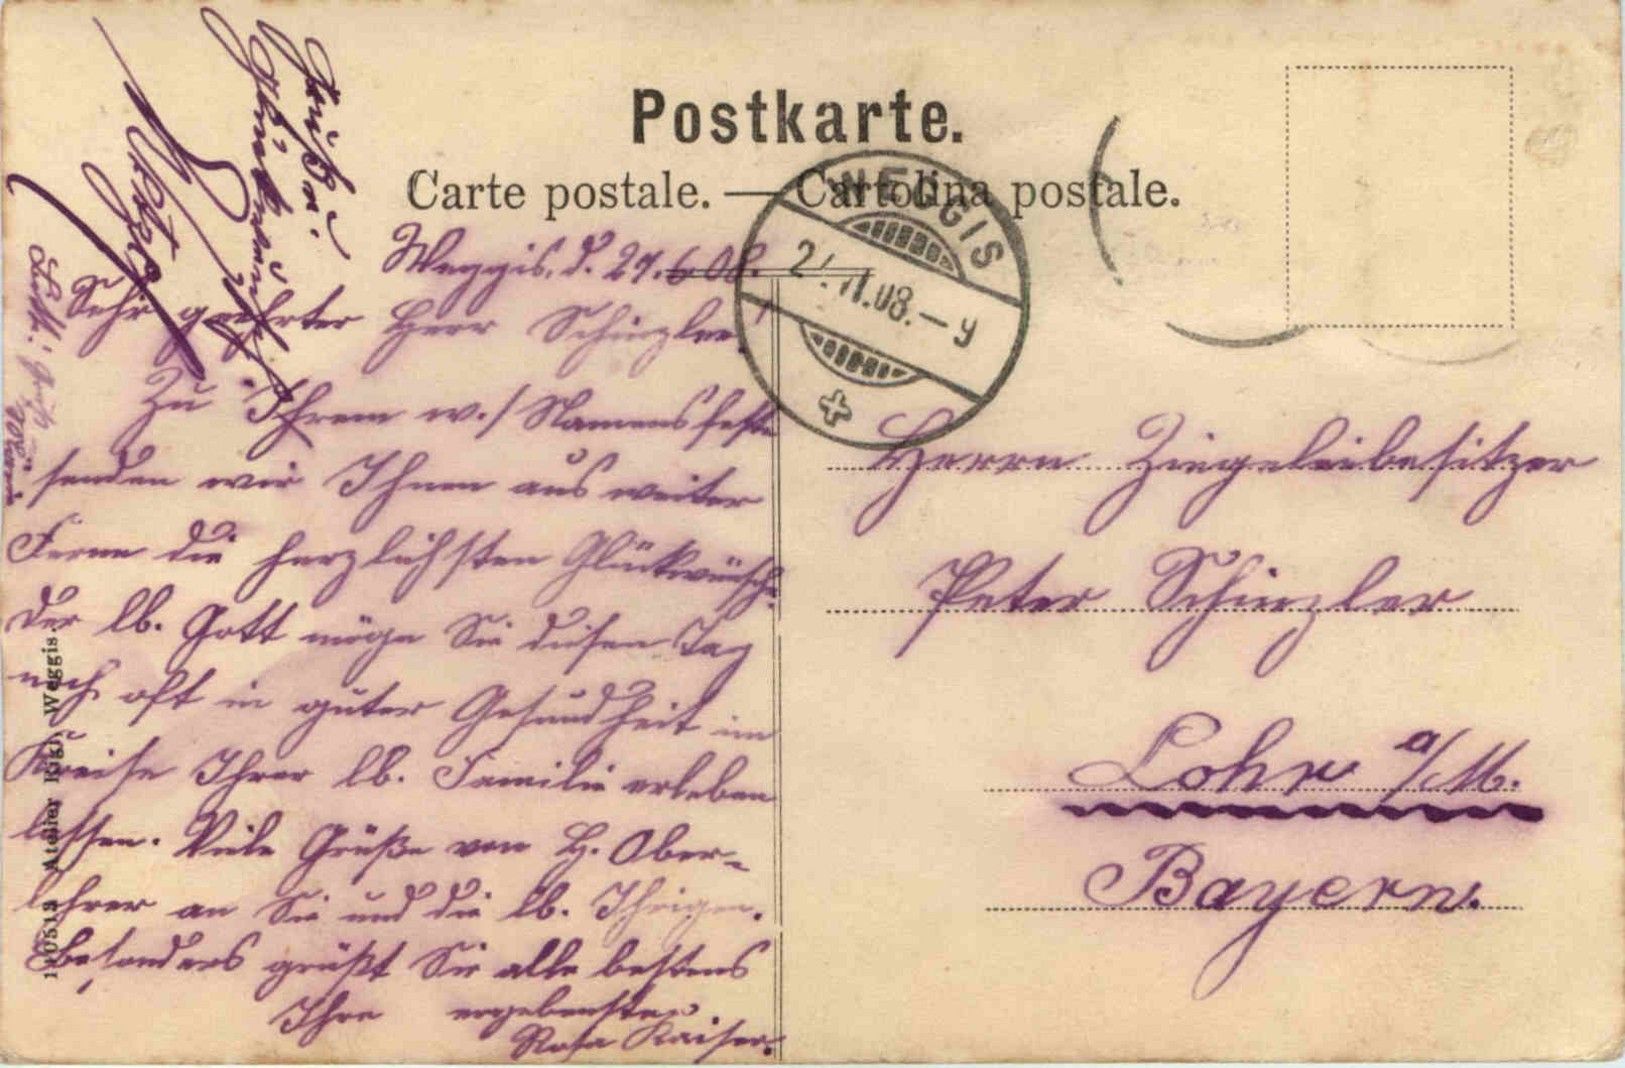 Postkarte.
Carte postale. — Cartolina postale.
WEGGIS
Weggis, d. 27.6.08.
Sehr geehrter Herr Schinzler!
Zu Ihrem w./ Namensfeste
senden wir Ihnen aus weiter
Ferne die herzlichsten Glückwünsche.
Der lb. Gott möge Sie diesen Tag
noch oft in guter Gesundheit im
Kreise Ihrer lb. Familie erleben
lassen. Viele Grüße von H. Ober-
lehrer an Sie und die lb. Ihrigen.
Besonders grüßt Sie alle bestens
Ihre ergebenste
Rosa Kaiser.
Herrn Ziegeleibesitzer
Peter Schinzler
Lohr a/M.
Bayern.
Atelier Weggis